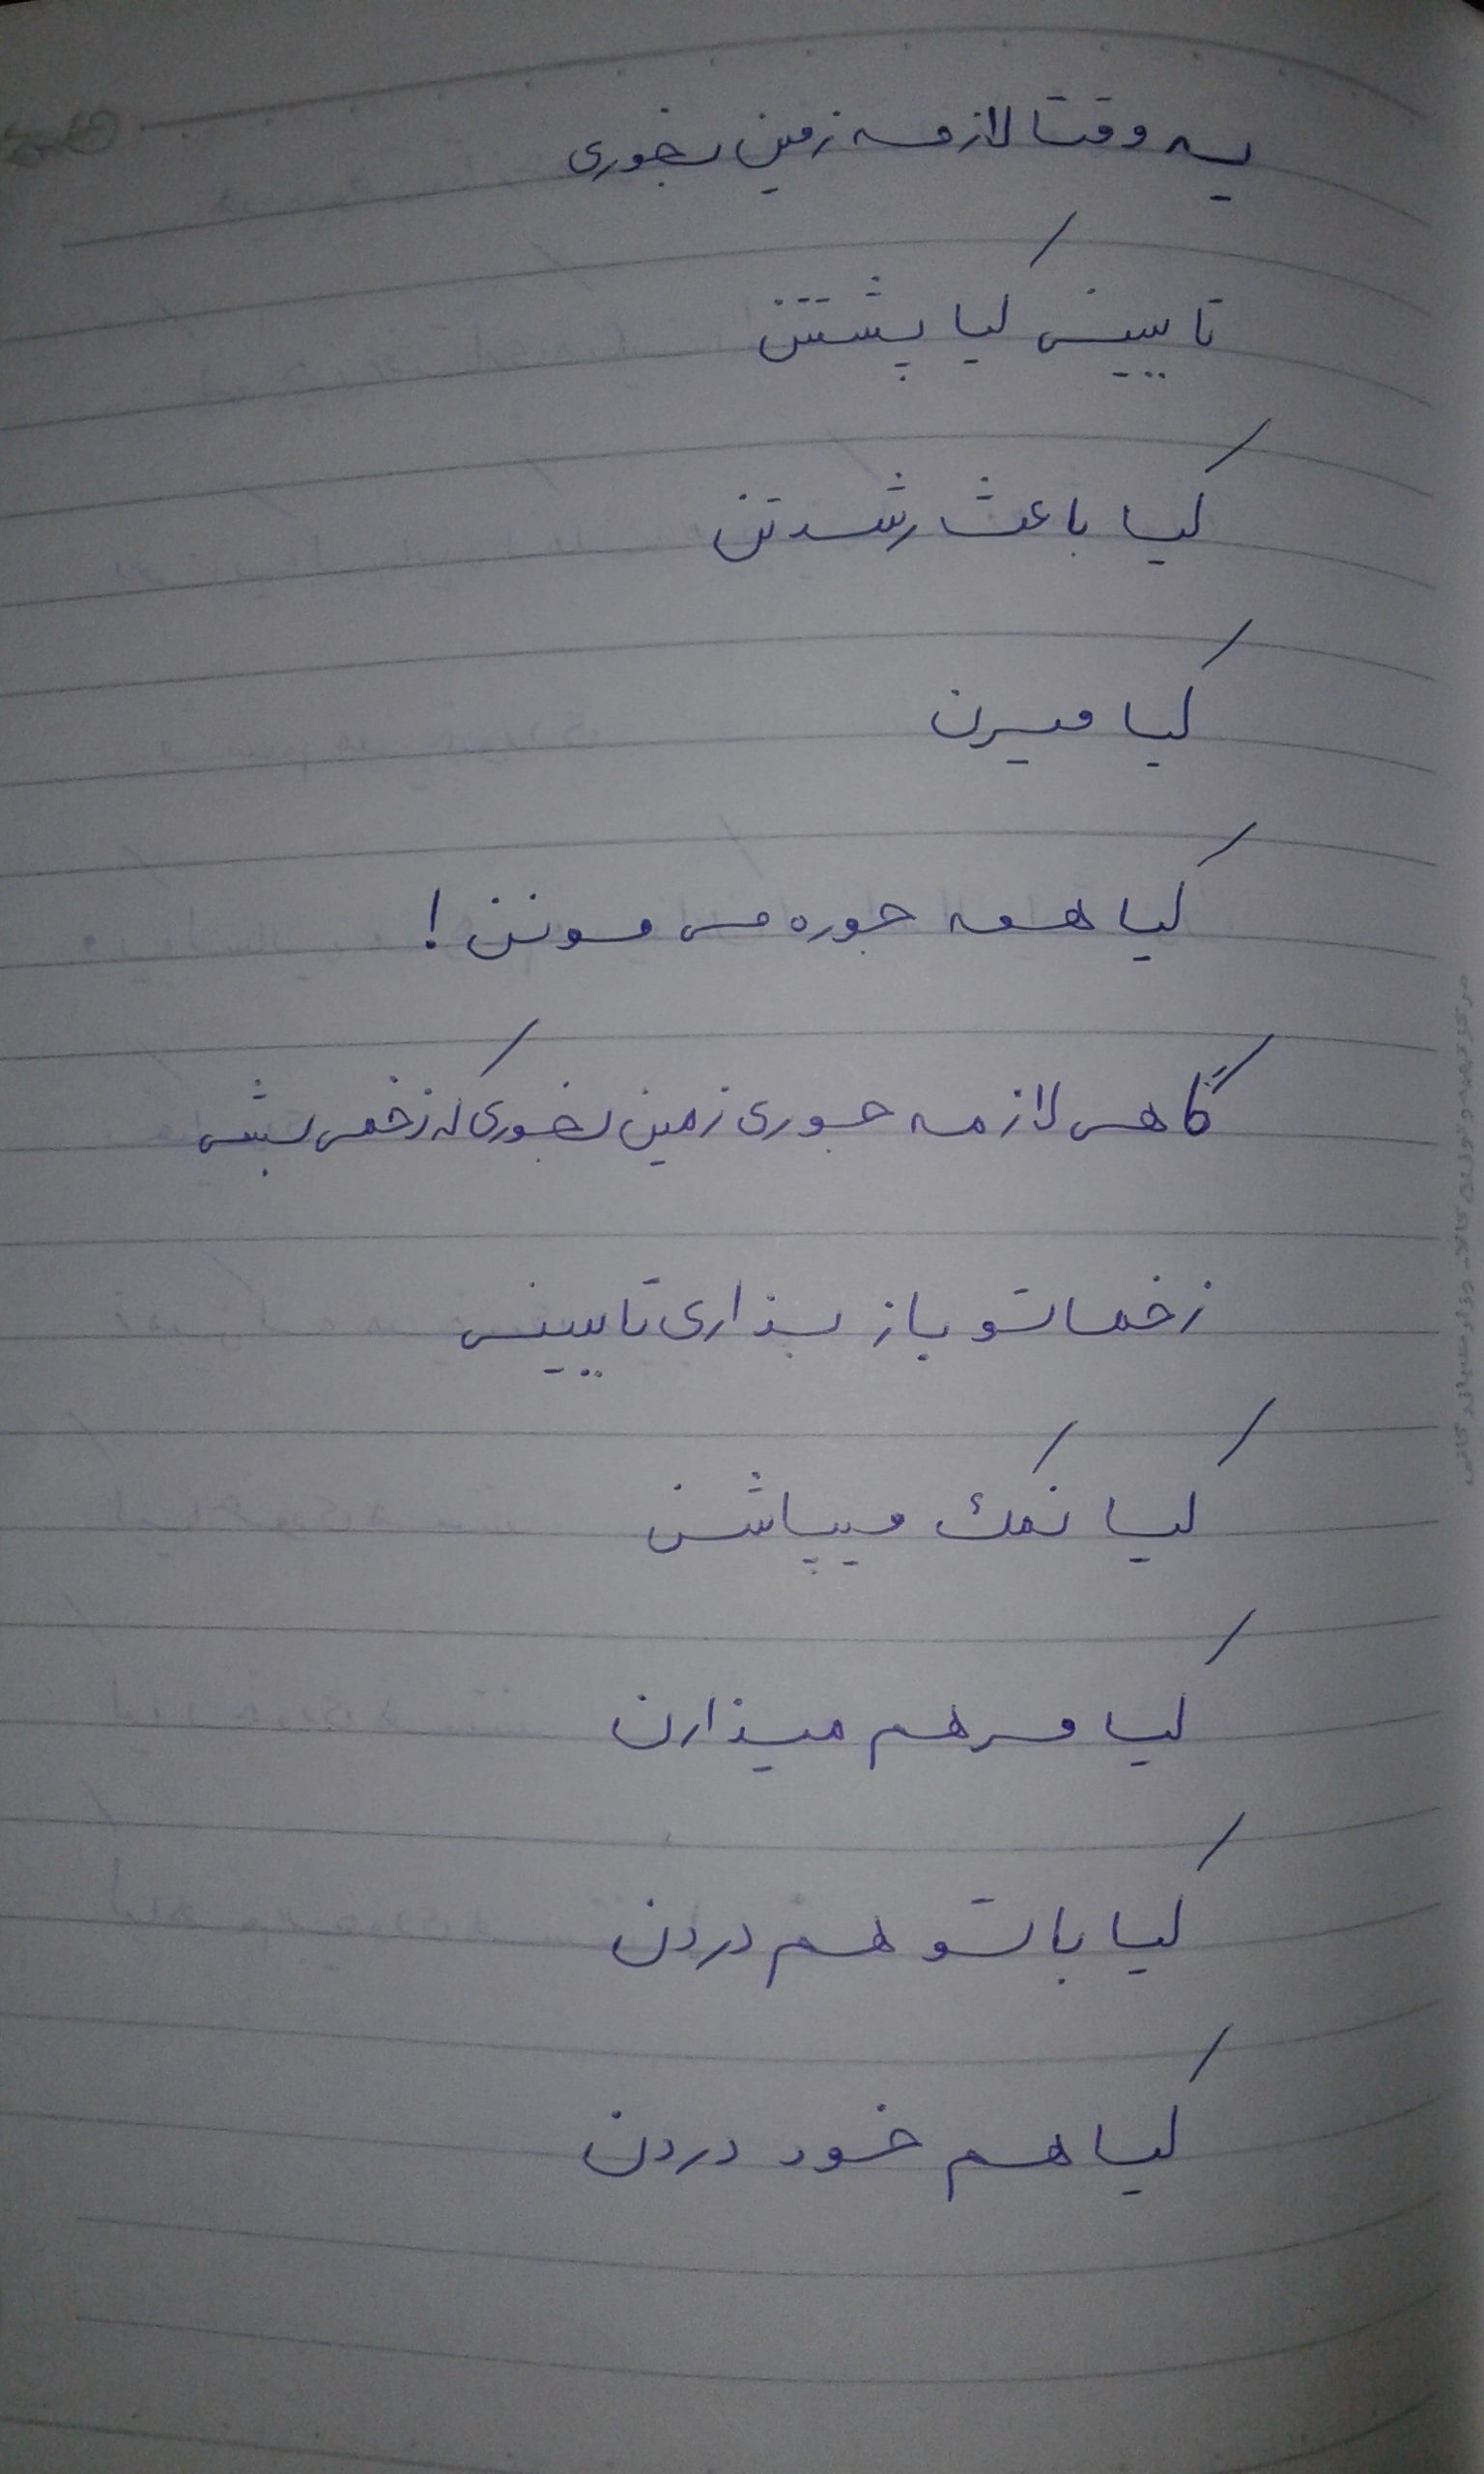 یه وقتا لازمه زمین بخوری
تا ببینی کیا پشتتن
کیا باعث رشدتن
کیا میرن
کیا همه جوره می مونن !
گاهی لازمه جوری زمین بخوری که زخمی بشی
زخماتو باز بذاری تا ببینی
کیا نمک میپاشن
کیا مرهم میذارن
کیا با تو هم دردن
کیا هم خود دردن